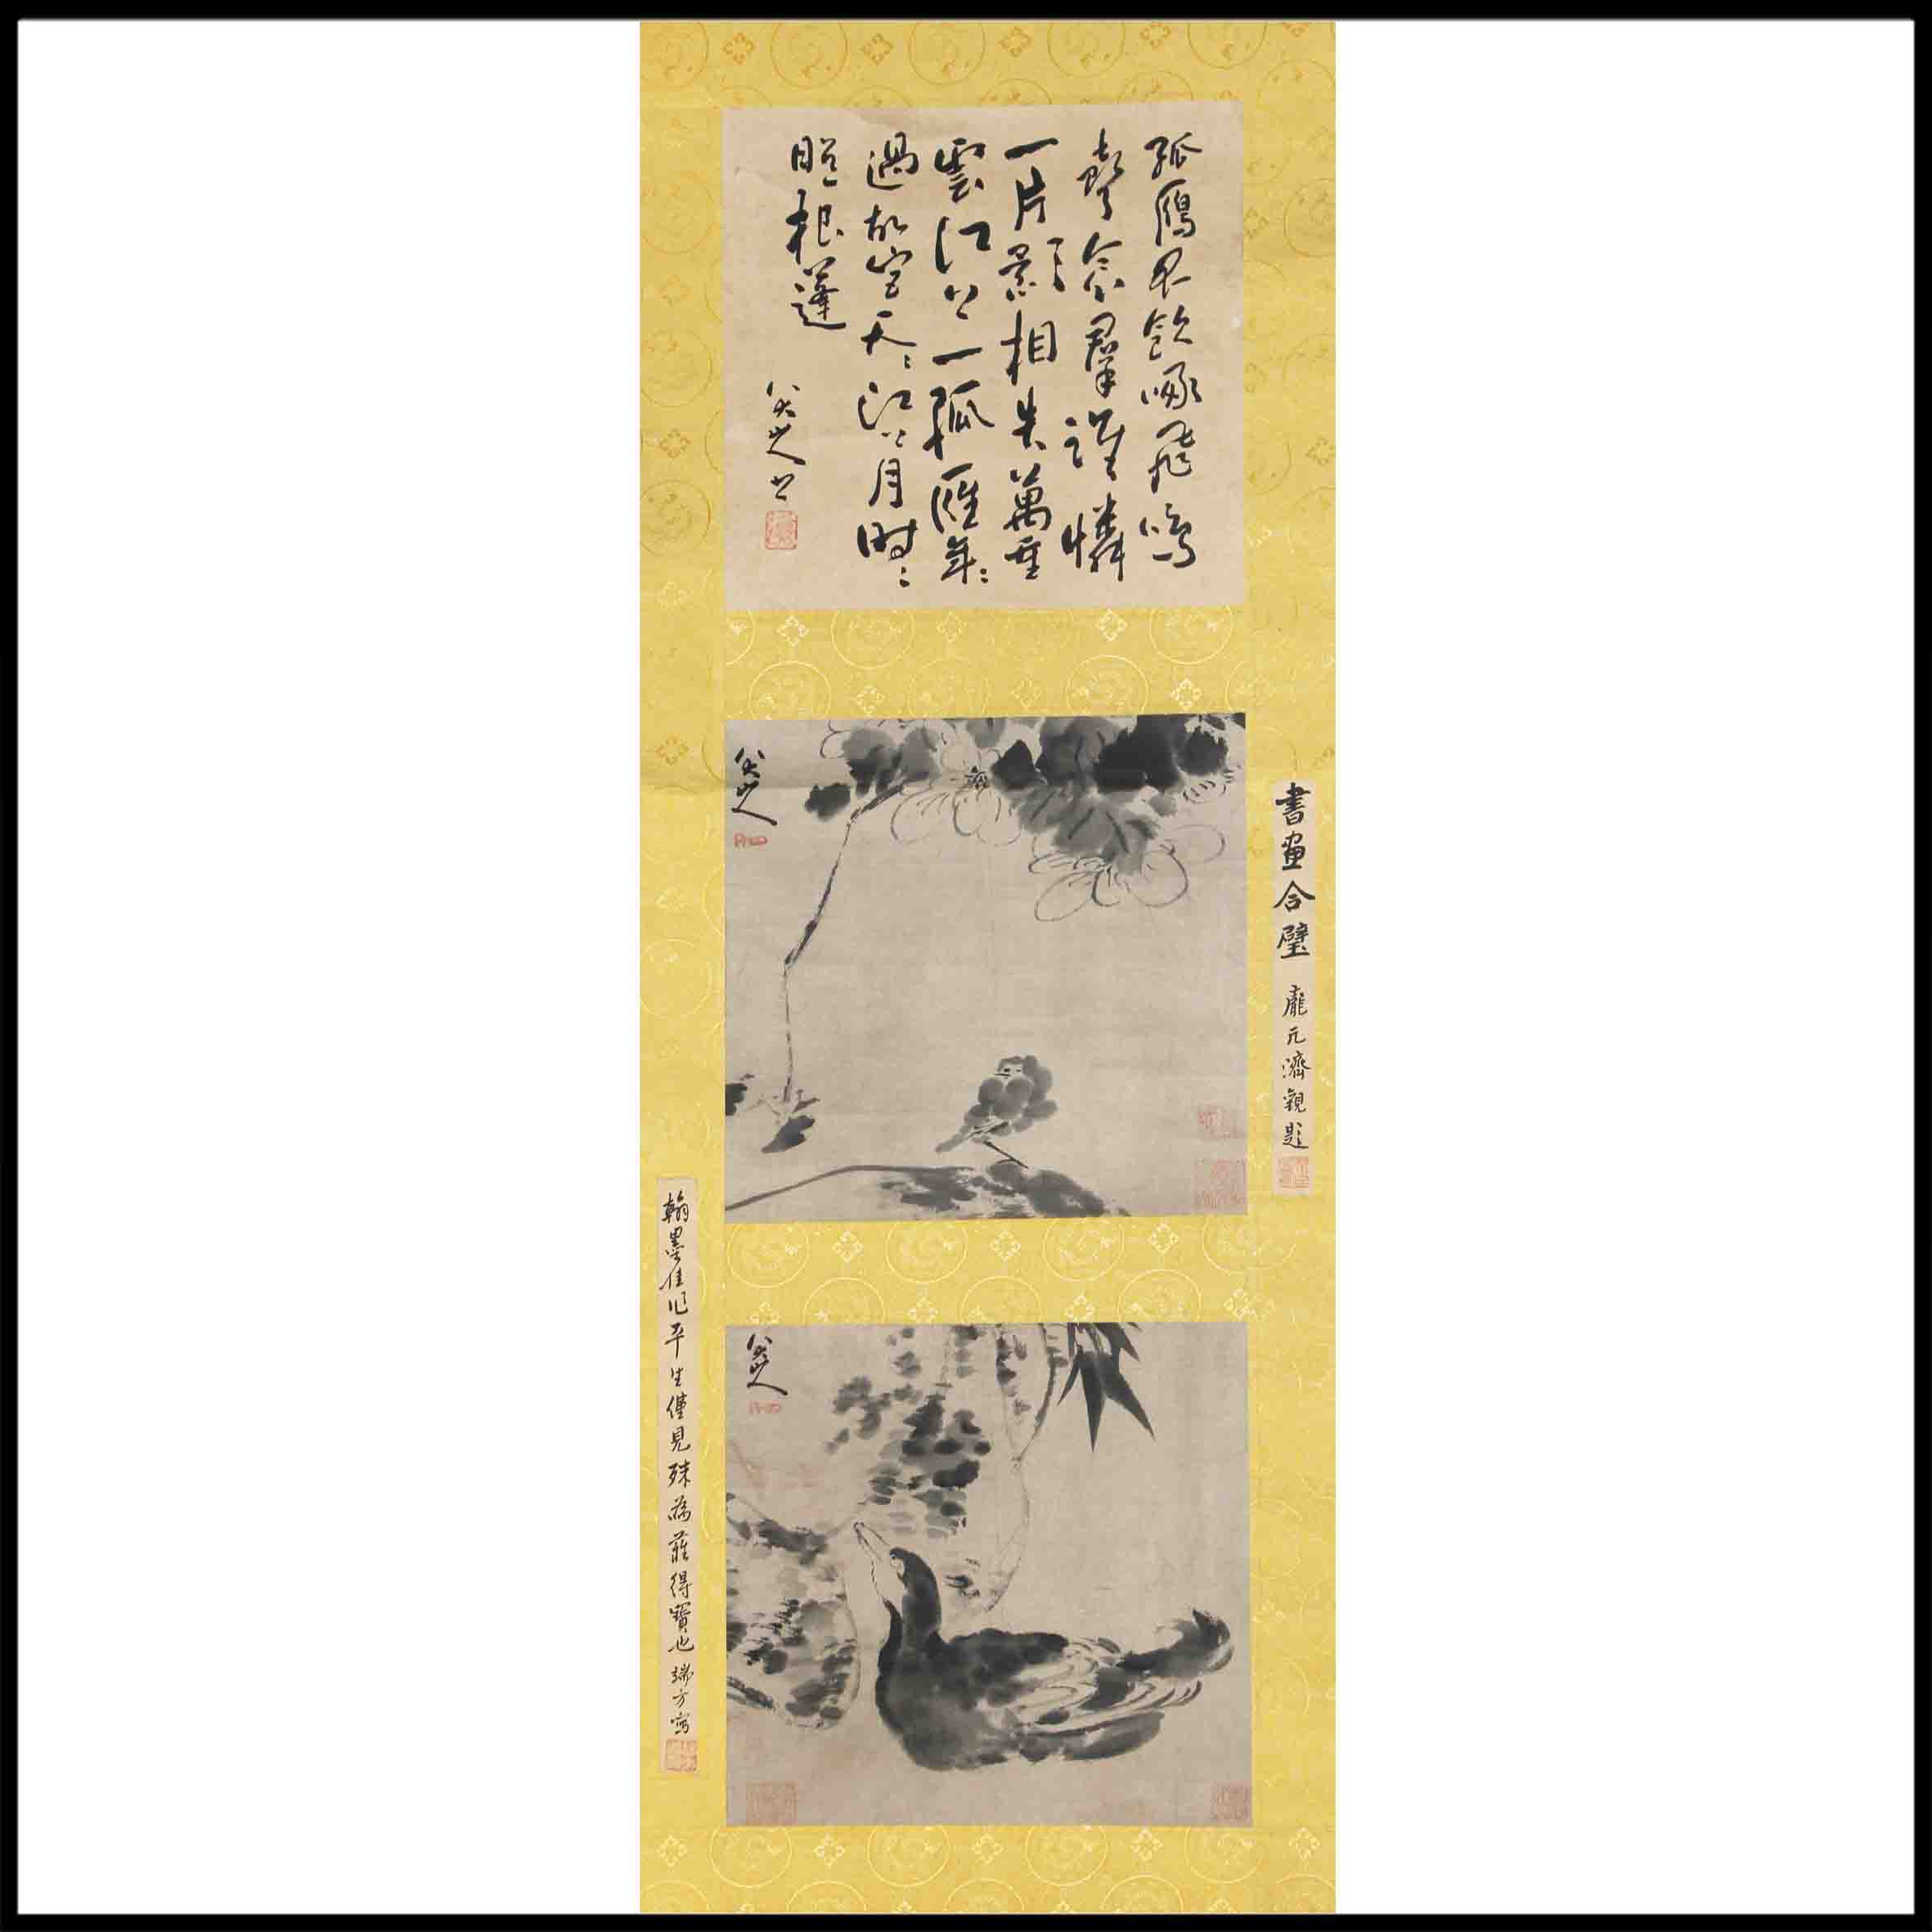 孤鴈不飲啄飛鳴
聲念羣誰憐
一片影相失萬重
雲江上一孤雁年〻
過故宮天〻江上月時〻
根蓬
八大山人书
八大山人
書畫合璧 龐元濟觀題
八大山人
翰墨佳作平生僅見殊為難得寶也 端方寫